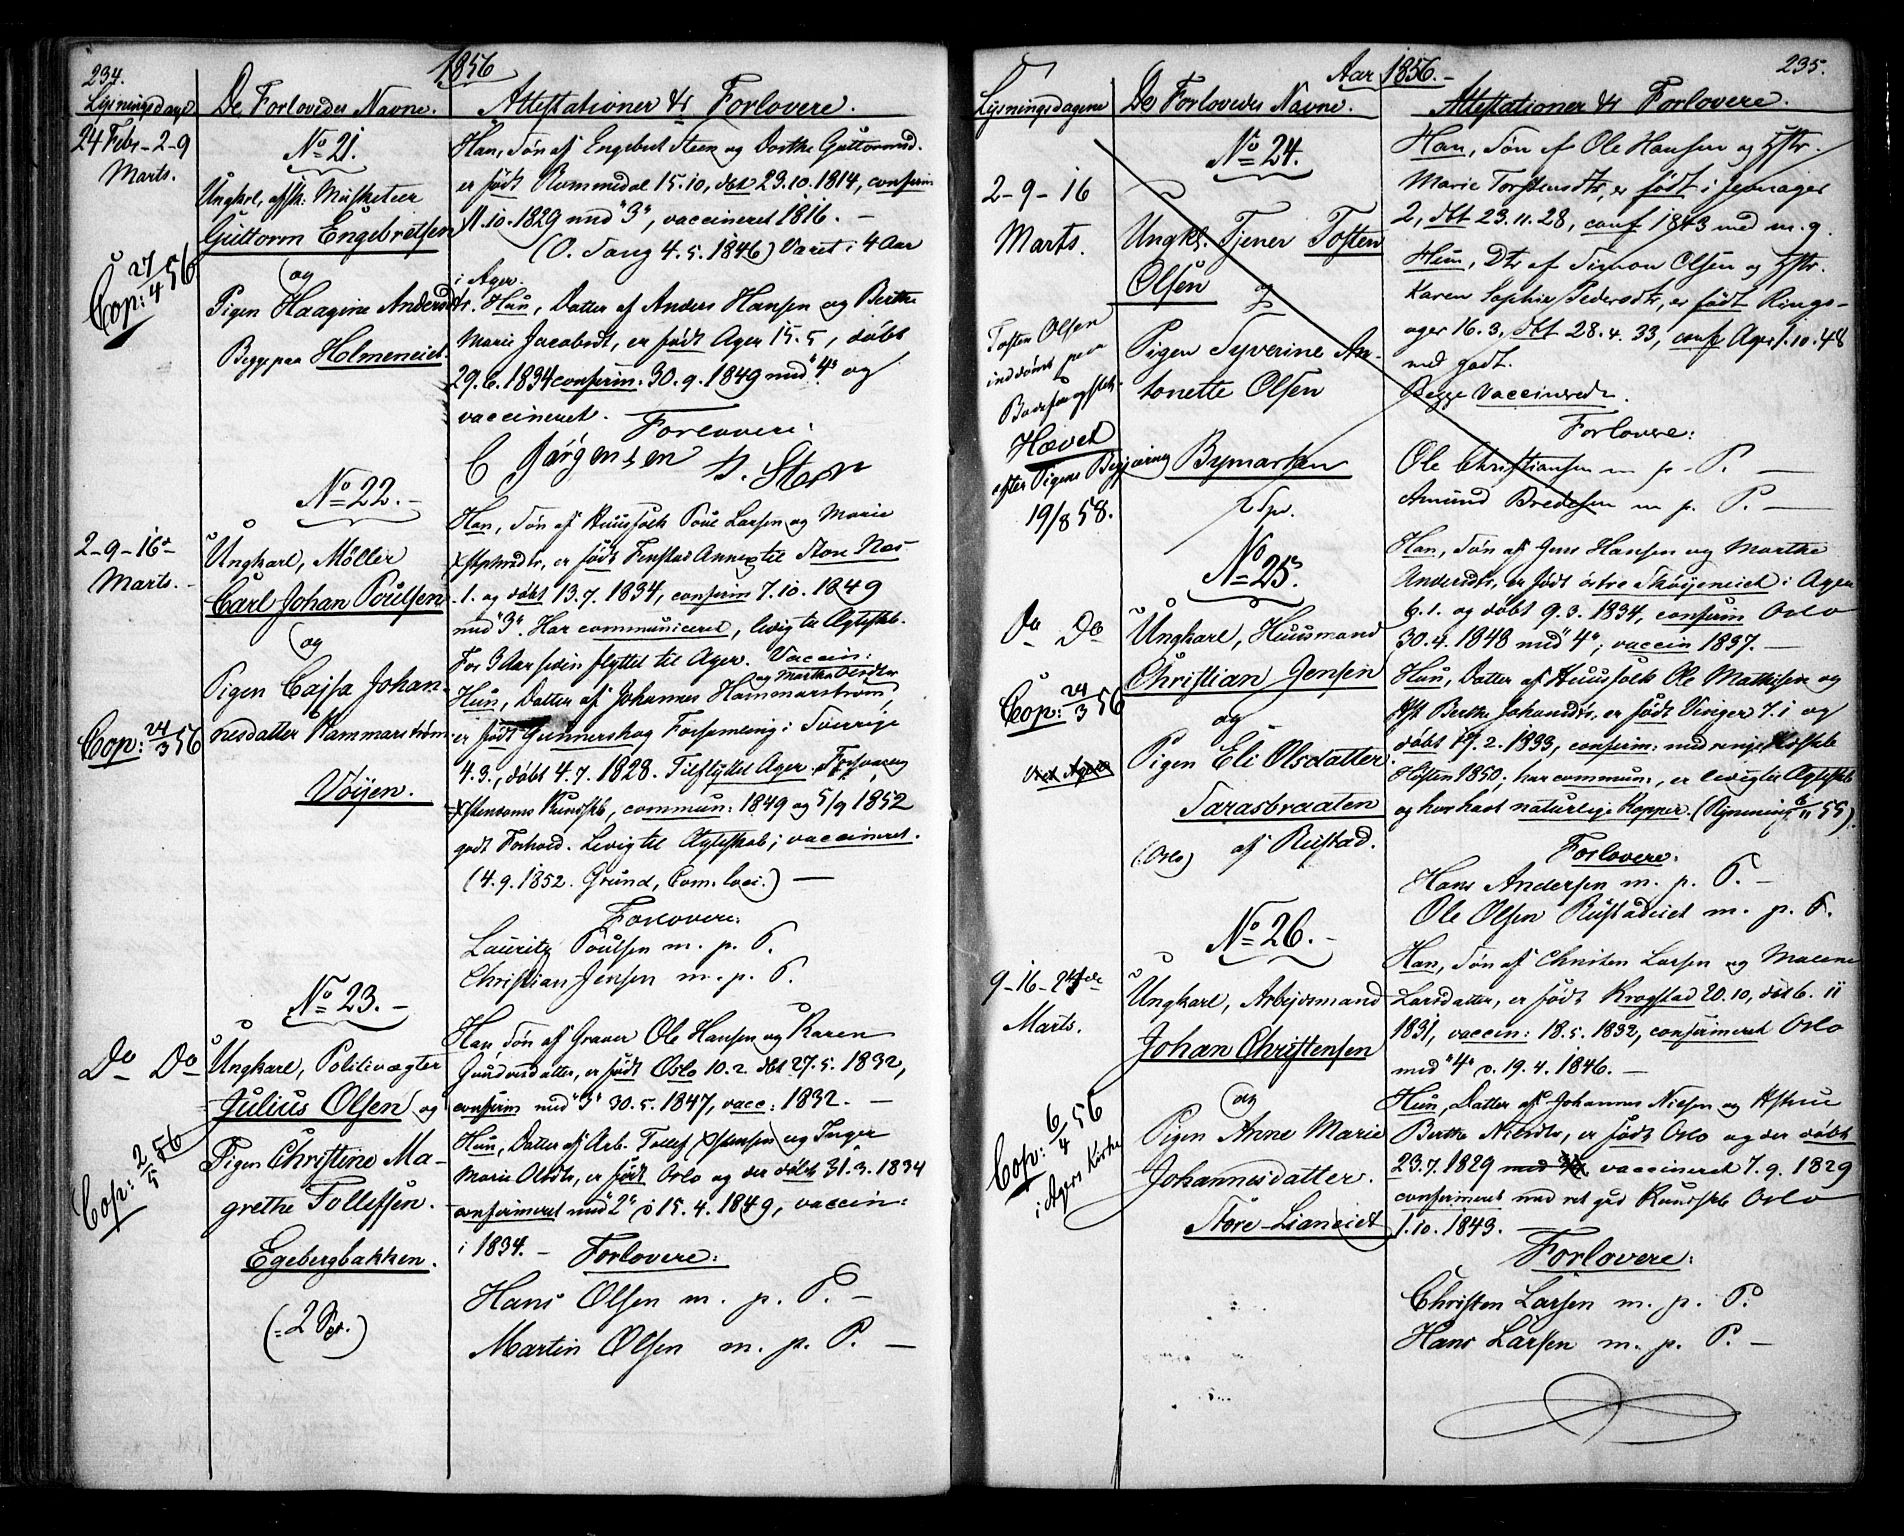 234.
1856
Lysningsdage
De Forlovedes Navne.
Attestationer & Forlovere.
24 Febr - 2 - 9
Marts.
No 21.
Ungkarl, afsk: Musketeer
Guttorm Engebretsen
og
Pigen Haagine Andersdtr.
Begge paa Holmeneiet.
Cop: 27/4 56
Han, Søn af Engebret Steen og Dorthe Guttormsd.
er født Rommedal 15.10, døbt 23.10.1814, confirm
11.10.1829 med "3", vaccineret 1816. —
(O. Tang 4.5.1846) Været i 4 Aar
i Ager.
Hun, Datter af Anders Hansen og Berthe
Marie Jacobsdt, er født Ager 15.5, døbt
29.6.1834 confirm: 30.9.1849 med "4" og
vaccineret.
Forlovere:
C Jørgensen
No 22. -
2 - 9 - 16
Marts. -
Ungkarl, Møller
Carl Johan Poulsen
og
Pigen Cajsa Johan-
nesdatter Hammarstrøm
Vøijen.
Cop: 24/3 56
Han, Søn af Huusfolk Poul Larsen og Marie
født Fenstad Annex til Store Næs
1. og døbt 13.7.1834, confirm 7.10.1849
med "3". Har communiceret, ledig til Ægtesk.
For 3 Aar siden flyttet til Ager. Vaccin:
Hun, Datter af Johannes Hammarstrøm
og Martha
er født Gunnerskog Forsamling i Sverrige
4.3., døbt 4.7.1828. Tilflyttet Ager, Forsvarlig
Xstendoms Kundskb, commun: 1849 og 5/9 1852
godt Forhold. Ledig til Ægteskab; vaccineret.
(4.9.1852. Grund, Com. loci.) —
Forlovere:
Lauritz Poulsen m. p. P.
Christian Jensen m. p. P.
No 23. -
Do Do
Ungkarl, Politivægter
Julius Olsen og
Pigen Christine Ma-
grethe Tollefsen.
Egebergbakken.
(2 Sp.)
Cop: 2/5 56
Han, Søn af Graver Ole Hansen og Karen
født Oslo 10.2. døbt 27.5.1832,
confirm med "3" 30.5.1847, vacc: 1832. —
Hun, Datter af Arb. Tollef Xstensen og Inger
Marie Olsdt, er født Oslo og der døbt 31.3.1834
confirmeret med "2" 15.4.1849, vaccin:
i 1834. -
Forlovere:
Hans Olsen m. p. P. -
Martin Olsen m. p. P. —
235.
Aar 1856. -
Lysningsdagene
De Forlovedes Navne.
Attestationer & Forlovere.
No 24.
2 - 9 - 16
Marts.
Ungk. Tjener Tosten
Olsen og
Pigen Syverine An-
tonette Olsen
Bymarken
Tosten Olsen
inddømt paa
Hævet
efter Pigens Begjæring
19/8 58.
Han, Søn af Ole Hansen og Hstr.
Marie Torstensdtr, er født i Jevnager
2, dbt 23.11.28, conf 1843 med m. g.
Hun, Dtr af Simon Olsen og Hstr.
Karen Sophie Pedersdtr, er født Rings-
ager 16.3, dbt 28.4.33, conf Ager 1.10.48
med godt.
Begge Vaccinerede.
Forlovere:
Ole Christiansen m p. P. —
Amund Bredesen m p. P. —
No 25.
Do Do
Ungkarl, Huusmand
Christian Jensen
og
Pigen Eli Olsdatter
Tarasbraaten
(Oslo) af Rustad.
Cop: 24/3 56
Han, Søn af Jens Hansen og Marthe
Andersdtr, er født østre Skøijeneiet i Ager
6.1. og døbt 9.3.1834, confirm Oslo
30.4.1848 med "4"; vaccin 1837. —
Hun, Datter af Huusfolk Ole Mathisen og
Hst Berthe Johansdtr, er født Vinger 7.1 og
døbt 17.2.1833, confirm: med ringe Kdskb
Høsten 1850; har commun:, er ledig til Ægteskb
og har havt naturlige Kopper.
Forlovere:
Hans Andersen m. p. P. -
Ole Olsen Rustadeiet m. p. P.
No 26. -
9 - 16 - 24de
Marts.
Ungkarl, Arbejdsmand
Johan Christensen
og
Pigen Anne Marie
Johannesdatter.
Store-Lianeiet
Cop: 6/4 56
i Agers Kirke
Han, Søn af Christen Larsen og Malene
Larsdatter, er født Krogstad 20.10, døbt 6.11
1831, vaccin: 18.5.1832, confirmeret Oslo
med "4" 19.4.1846. —
Hun, Datter af Johannes Nielsen og Hstrue
Berthe Nilsdtr, er født Oslo og der døbt
23.7.1829 vaccineret 7.9.1829
confirmeret med ret god Kundskb Oslo
1.10.1843.
Forlovere:
Christen Larsen m. p. P.
Hans Larsen m. p. P. —